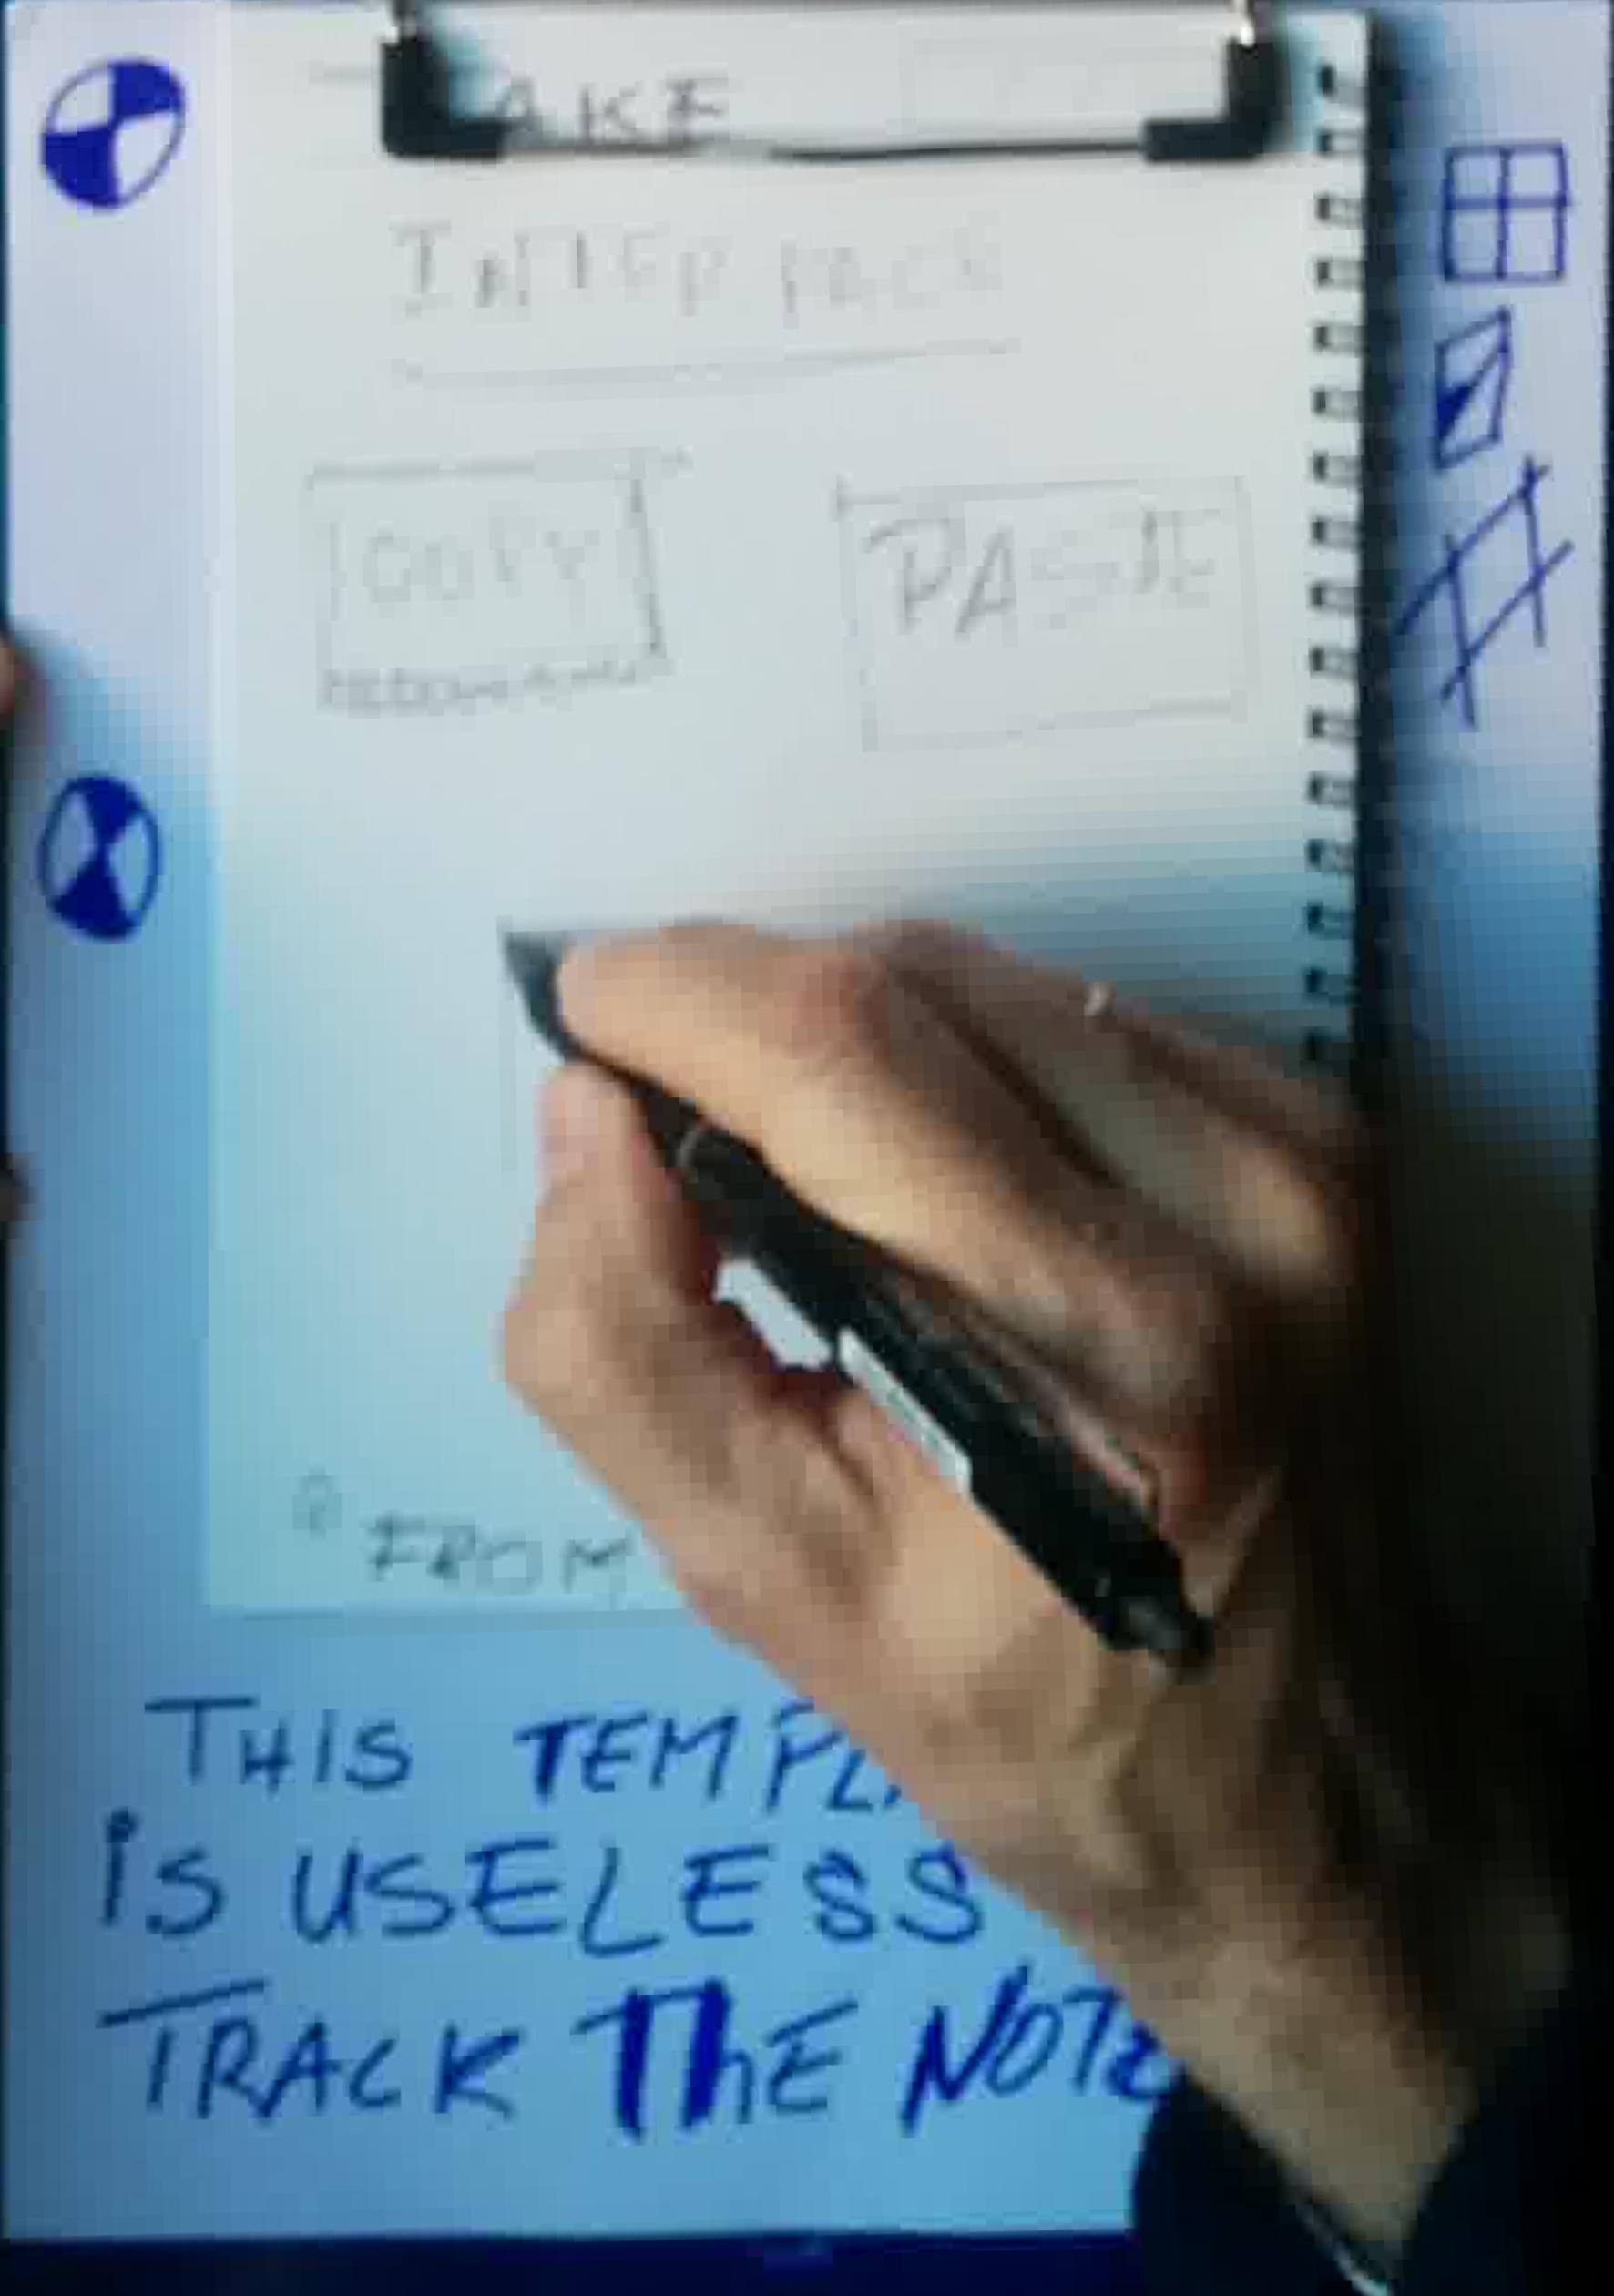 AKE
INTERFACE
COPY PASTE
FROM
THIS TEMPL
is USELESS
TRACK ThE NOTE